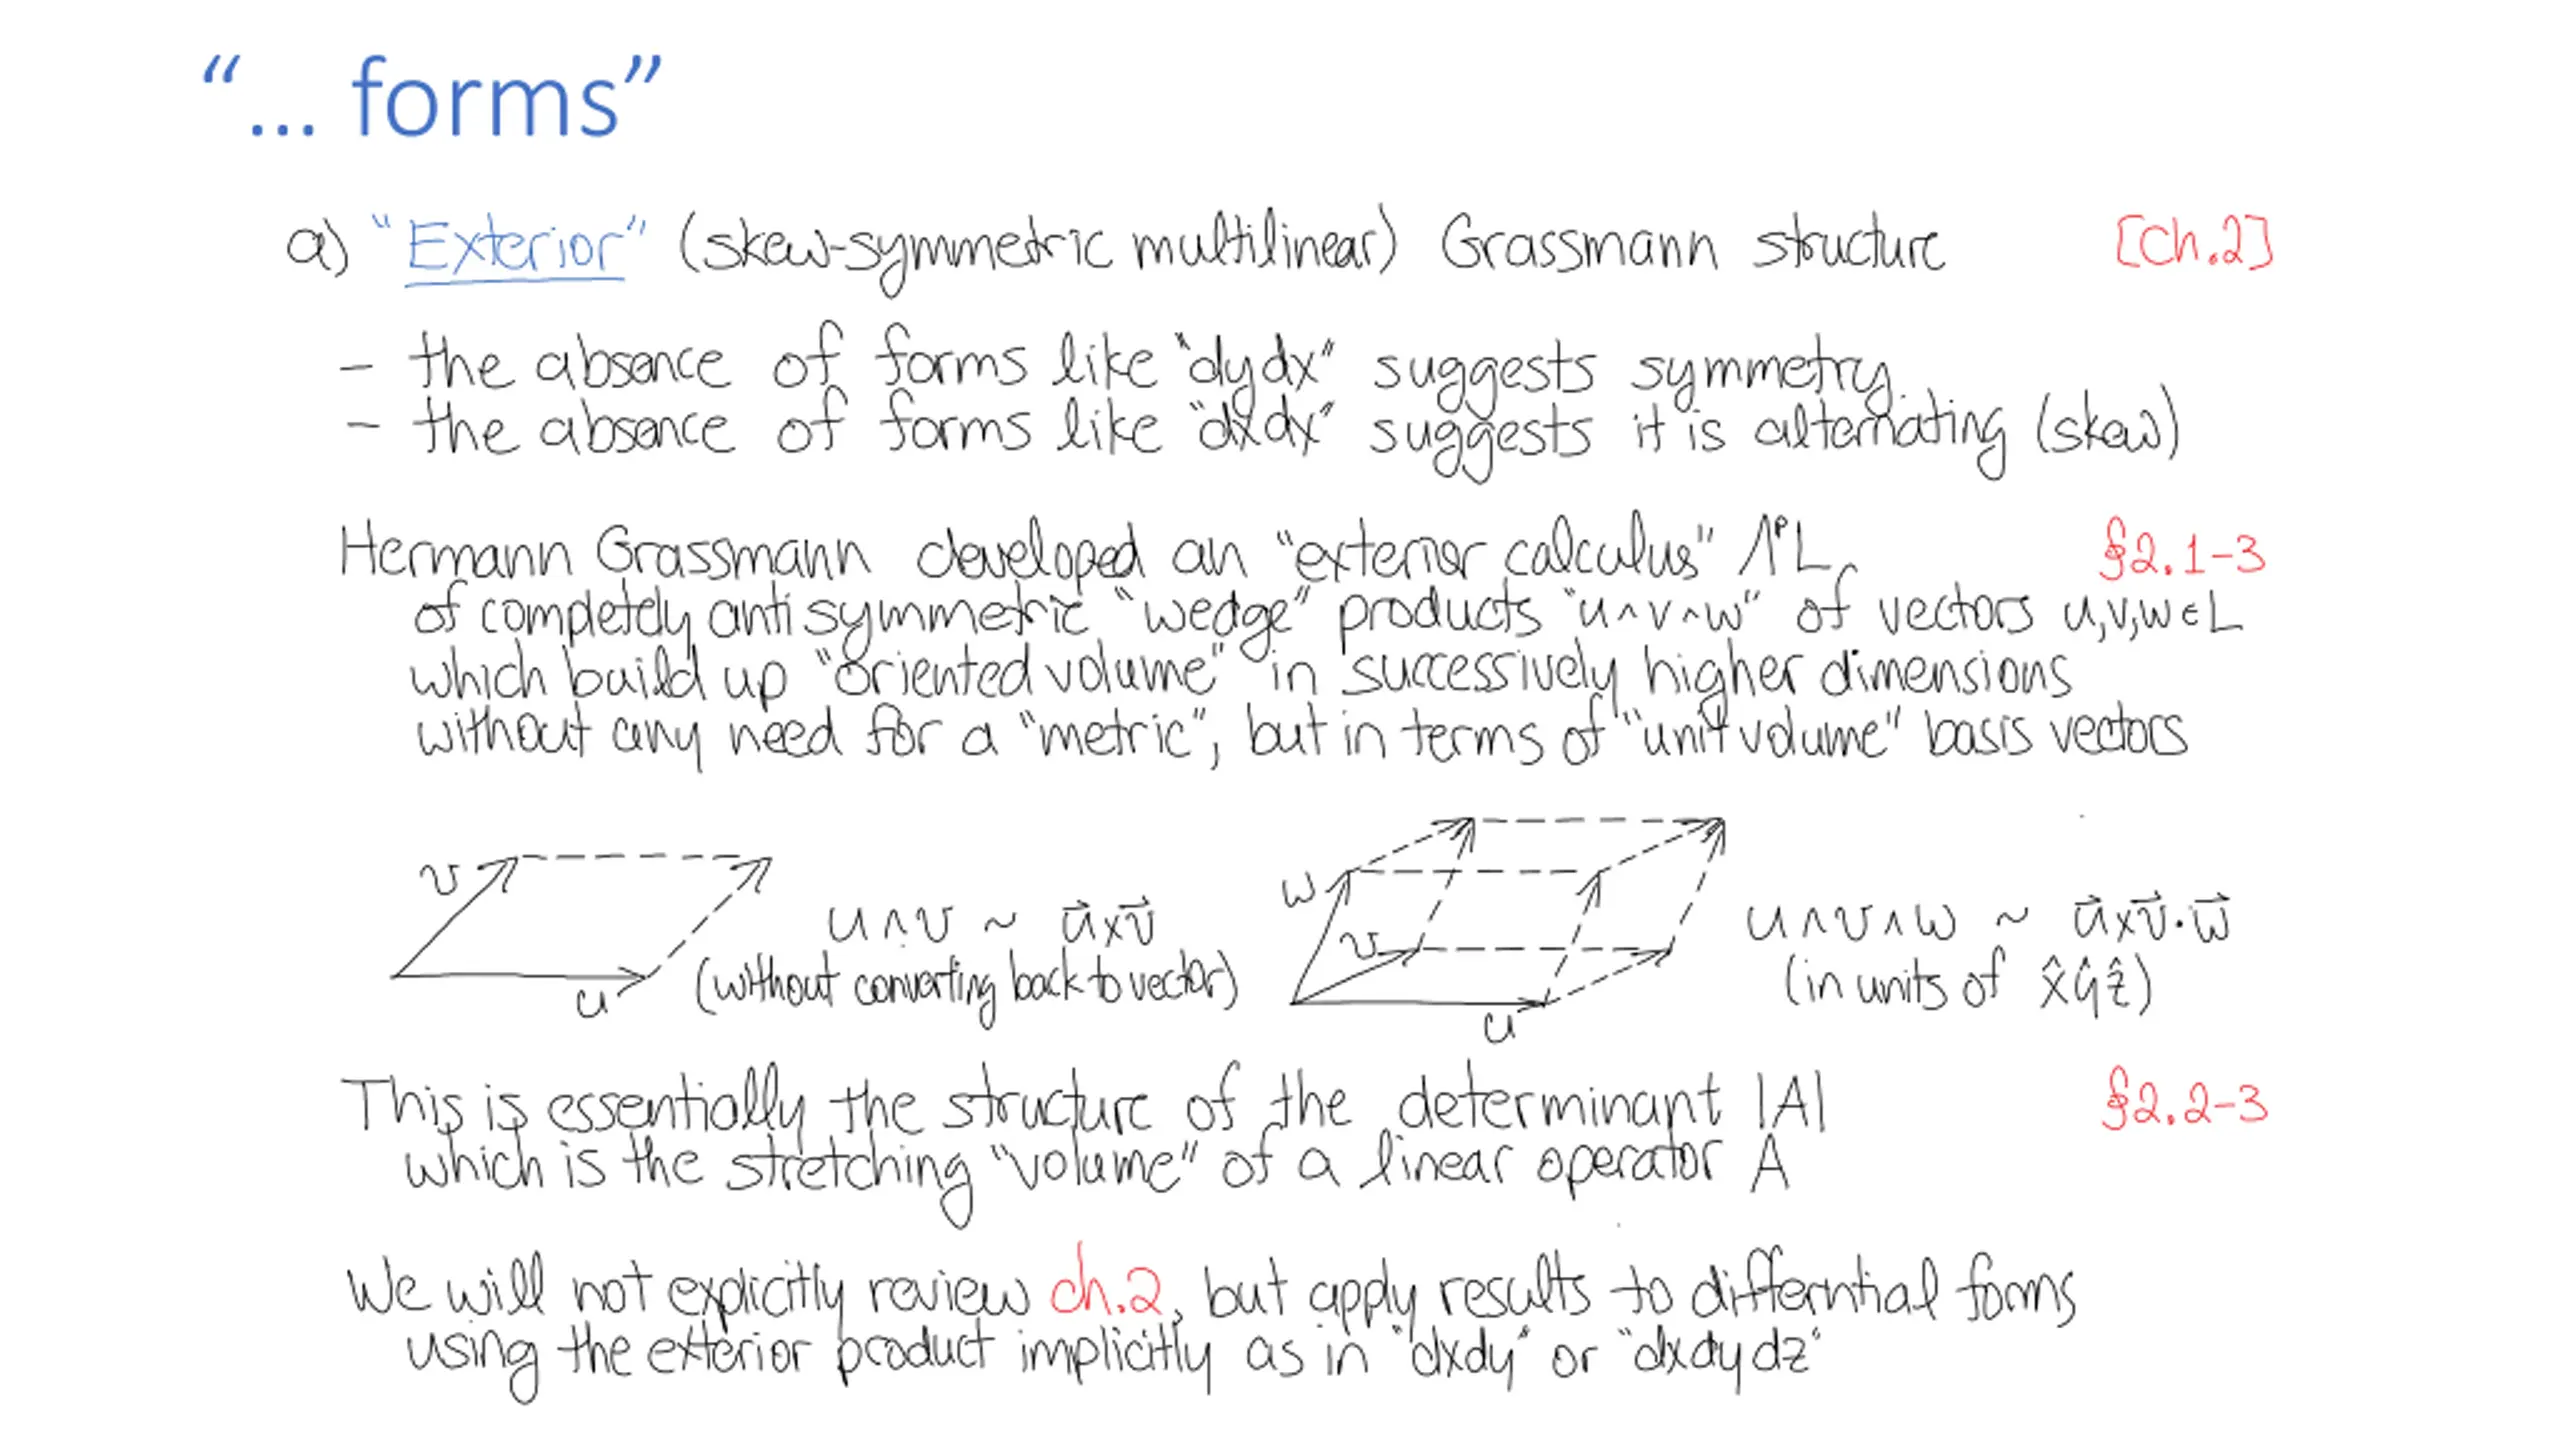 “... forms”
a) "Exterior" (skew-symmetric multilinear) Grassmann structure [Ch.2]
- the absence of forms like "dydx" suggests symmetry.
- the absence of forms like "dxdx" suggests it is alternating (skew)
Hermann Grassmann developed an "exterior calculus" ΛᵖL §2.1-3
of completely antisymmetric "wedge" products "u∧v∧w" of vectors u,v,w∈L
which build up "oriented volume" in successively higher dimensions
without any need for a "metric", but in terms of "unit volume" basis vectors
v
u
u∧v ~ u⃗×v⃗
(without converting back to vector)
w
v
u
u∧v∧w ~ u⃗×v⃗·w⃗
(in units of x̂ŷẑ)
This is essentially the structure of the determinant |A| §2.2-3
which is the stretching "volume" of a linear operator A
We will not explicitly review ch.2, but apply results to differntial forms
using the exterior product implicitly as in "dxdy" or "dxdydz"